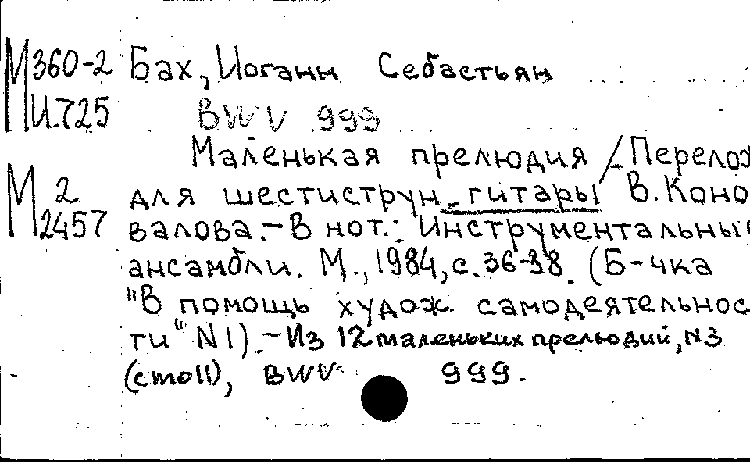 М360-2 Бах, Иоганн Себастьян
И.725 BWV 999
Маленькая прелюдия / Перелож
М2 для шестиструн. гитары В. Коно
2457 валова. – В нот.: Инструментальны
ансамбли. М., 1984, с. 36-38. (Б-чка
"В помощь худож. самодеятельнос
ти" N1). – Из 12 маленьких прелюдий, N3
(c moll), BWV 999.